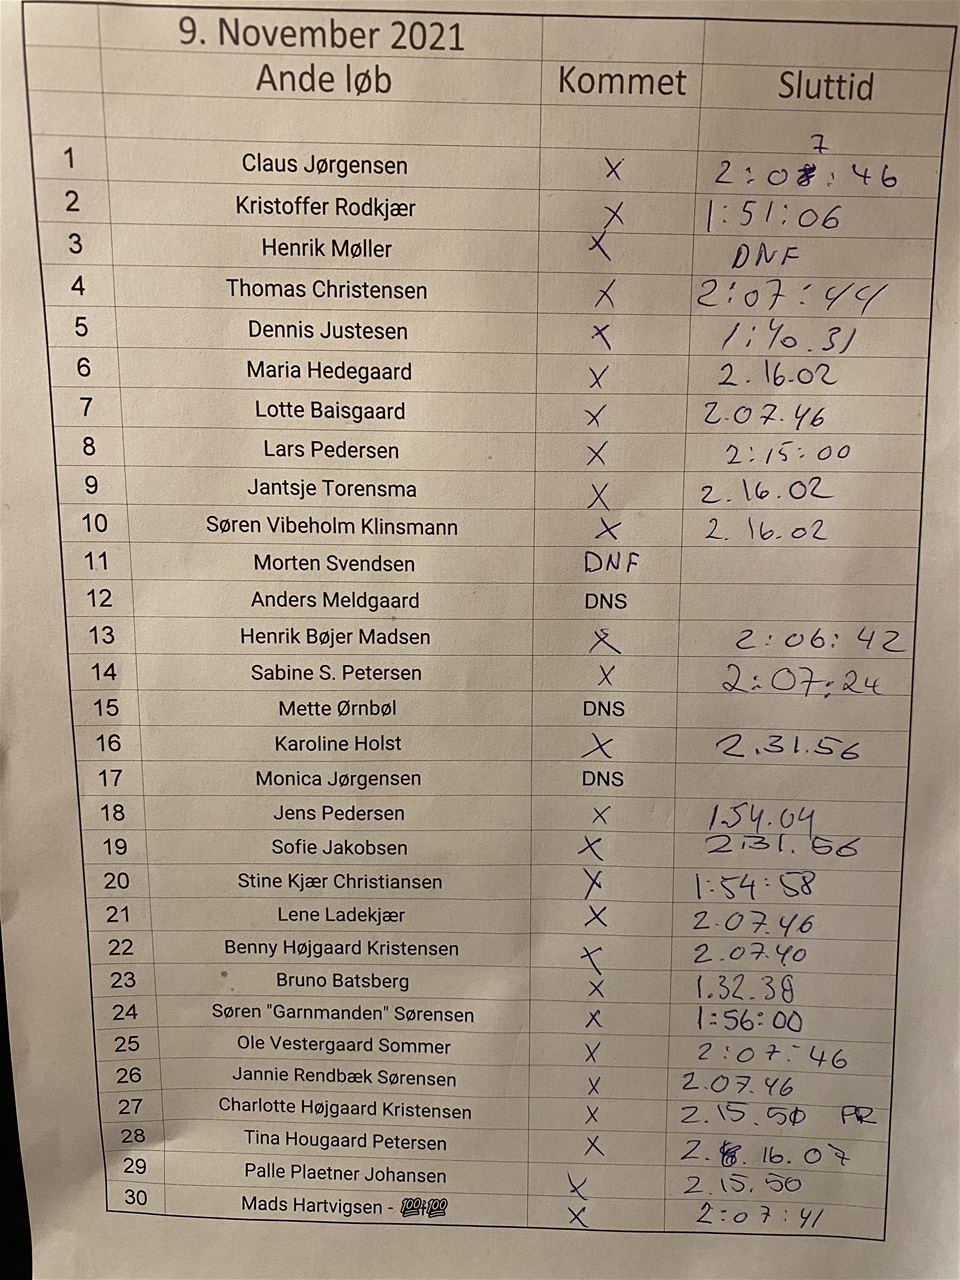 9. November 2021
Ande løb Kommet Sluttid
7
1 Claus Jørgensen X 2:08:46
2 Kristoffer Rodkjær X 1:51:06
3 Henrik Møller X DNF
4 Thomas Christensen X 2:07:44
5 Dennis Justesen X 1:40.31
6 Maria Hedegaard X 2.16.02
7 Lotte Baisgaard X 2.07.46
8 Lars Pedersen X 2:15:00
9 Jantsje Torensma X 2.16.02
10 Søren Vibeholm Klinsmann X 2.16.02
11 Morten Svendsen DNF
12 Anders Meldgaard DNS
13 Henrik Bøjer Madsen X 2:06:42
14 Sabine S. Petersen X 2:07:24
15 Mette Ørnbøl DNS
16 Karoline Holst X 2.31.56
17 Monica Jørgensen DNS
18 Jens Pedersen X 1.54.04
19 Sofie Jakobsen X 2.31.56
20 Stine Kjær Christiansen X 1:54:58
21 Lene Ladekjær X 2.07.46
22 Benny Højgaard Kristensen X 2.07.40
23 Bruno Batsberg X 1.32.38
24 Søren "Garnmanden" Sørensen X 1:56:00
25 Ole Vestergaard Sommer X 2:07:46
26 Jannie Rendbæk Sørensen X 2.07.46
27 Charlotte Højgaard Kristensen X 2.15.50 PR
28 Tina Hougaard Petersen X 2.16.07
29 Palle Plaetner Johansen X 2.15.50
30 Mads Hartvigsen - 💯+💯 X 2:07:41